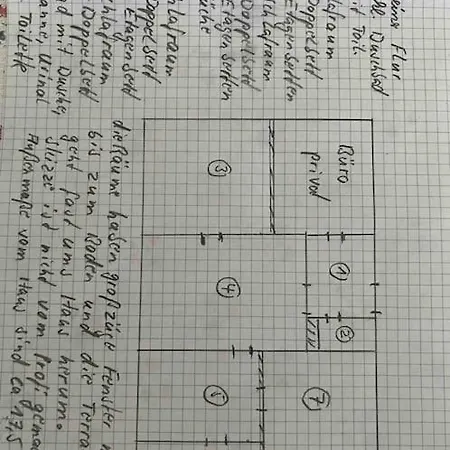 Flur
Duschbad
Toil.
Schlafraum
Doppelbett
Etagenbetten
Schlafraum
Doppelbett
Etagenbetten
Küche
Schlafraum
Doppelbett
Etagenbett
Schlafraum
Doppelbett
Bad mit Dusche,
Wanne, Urinal
Toilette
die Räume haben großzügige Fenster
bis zum Boden und die Terra
geht fast ums Haus herum.
Skizze ist nicht vom Profi gemac
Außenmaße vom Haus sind ca 17,5
Büro
privat
1
2
3
4
7